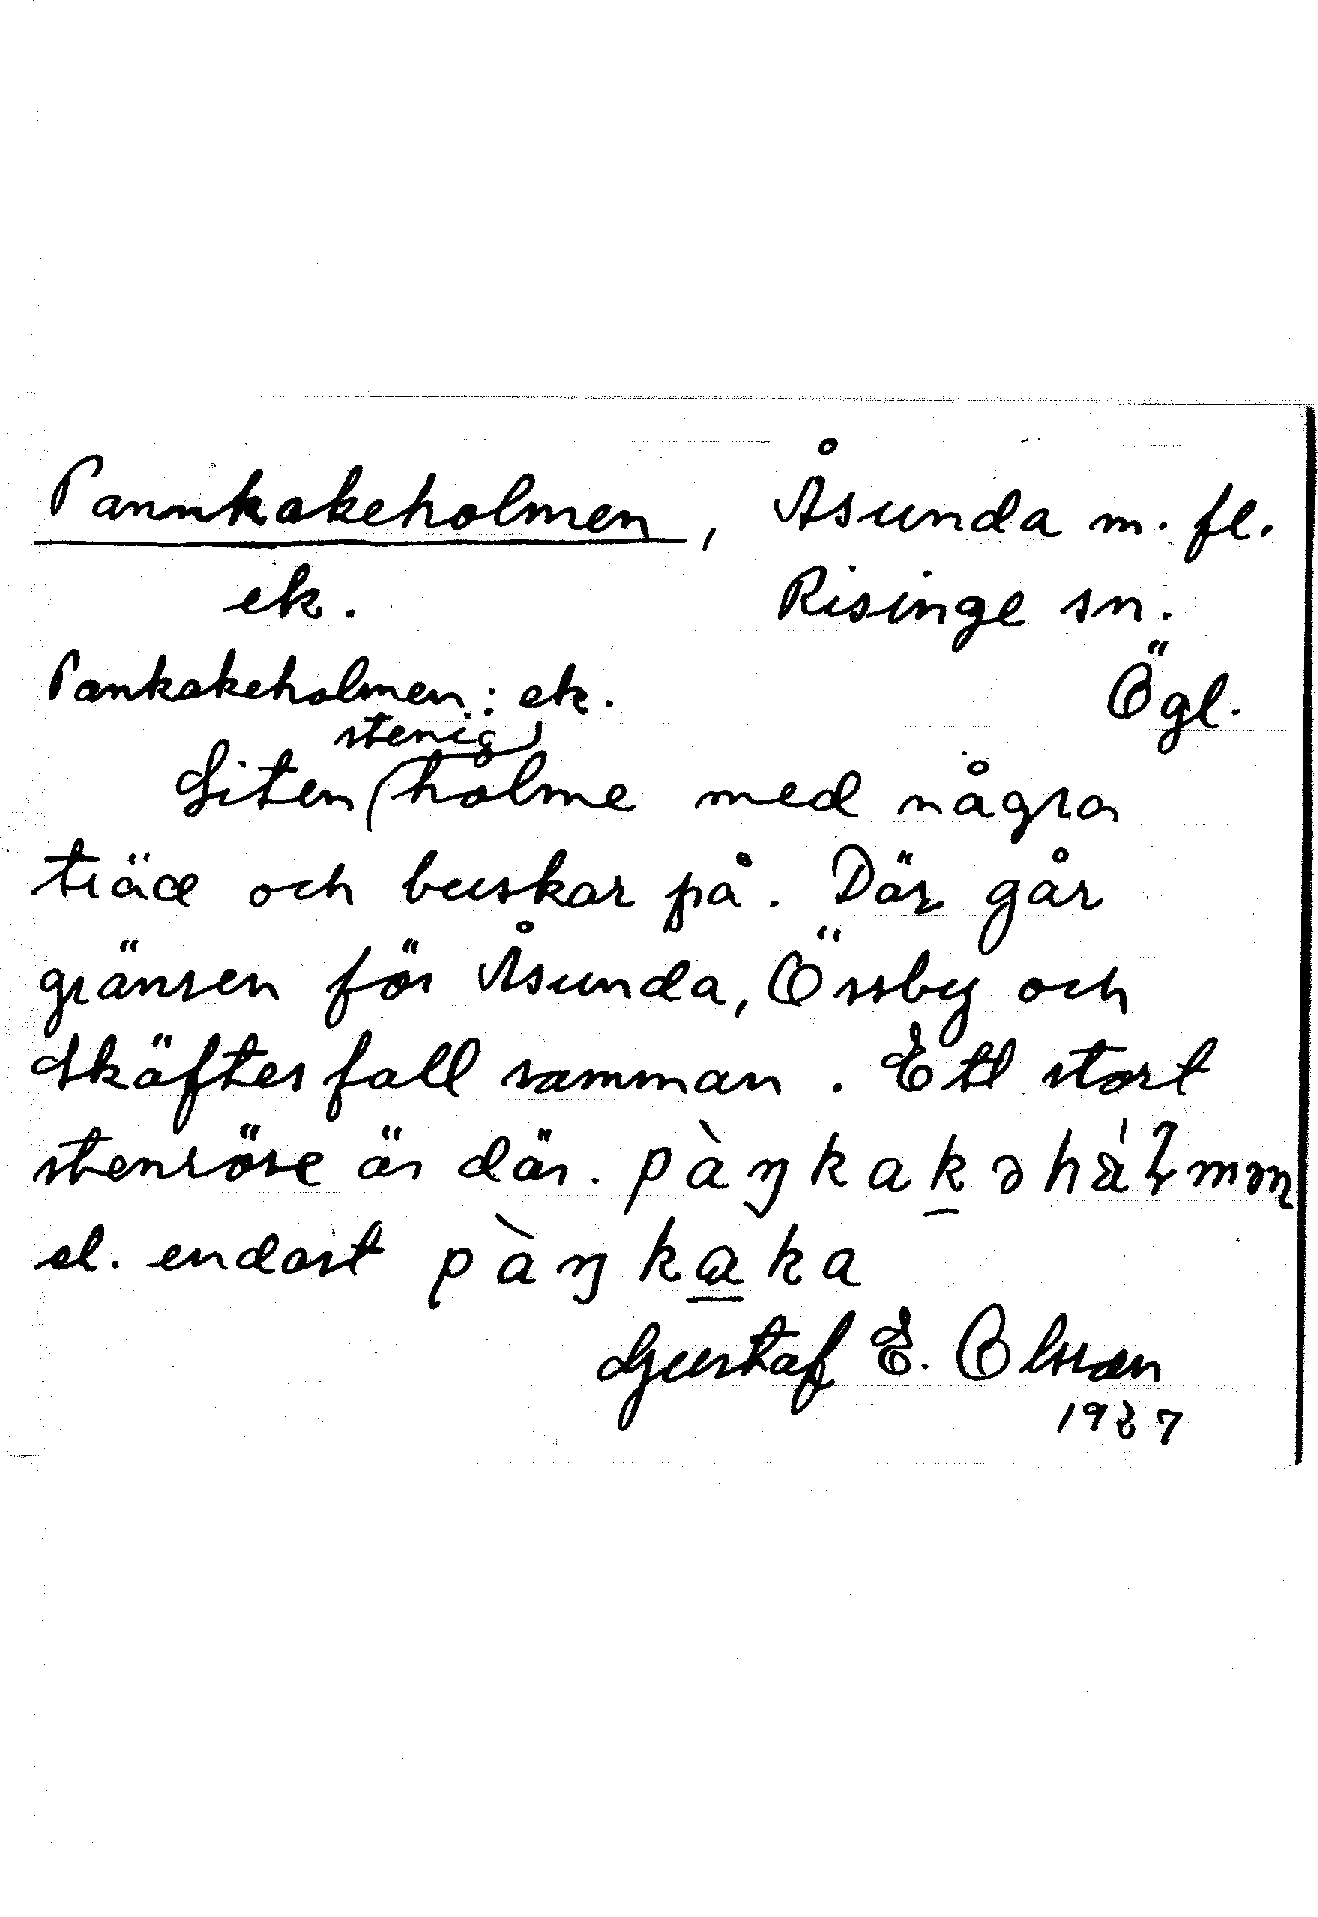 Pannkakeholmen, Åsunda m. fl.
ek. Risinge sn.
Pankakeholmen: ek. Ögl.
stenig
Liten holme med några
träd och buskar på. Där går
gränsen för Åsunda, Össby och
Skäftesfall samman. Ett stort
stenröse är där. pàŋkakəhàɬmən
el. endast pàŋkaka
Gustaf E. Olsson
1967